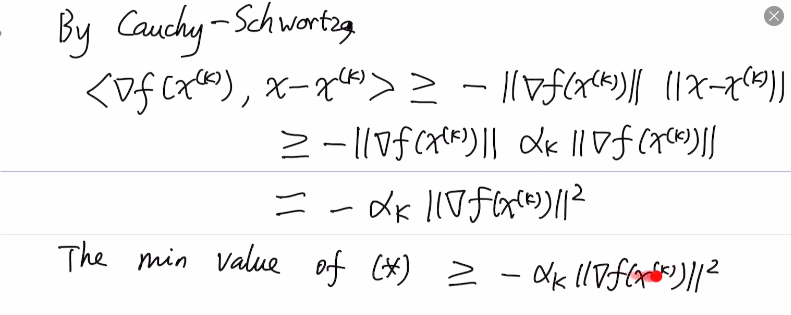 By Cauchy-Schwartz,
<∇f(x⁽ᵏ⁾), x-x⁽ᵏ⁾> ≥ - ||∇f(x⁽ᵏ⁾)|| ||x-x⁽ᵏ⁾||
≥ -||∇f(x⁽ᵏ⁾)|| αₖ ||∇f(x⁽ᵏ⁾)||
= - αₖ ||∇f(x⁽ᵏ⁾)||²
The min value of (*) ≥ - αₖ ||∇f(x⁽ᵏ⁾)||²